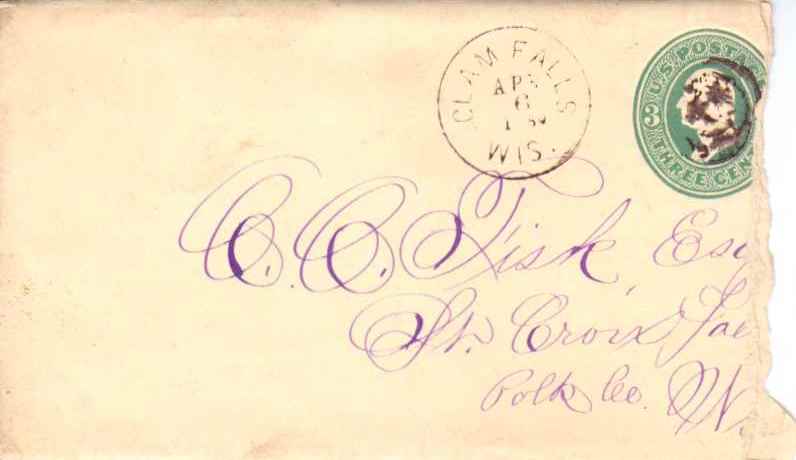 CLAM FALLS
APR
6
WIS.
U.S. POSTA
3
THREE CEN
C. C. Fisk, Esq
St. Croix Fal
Polk Co. W